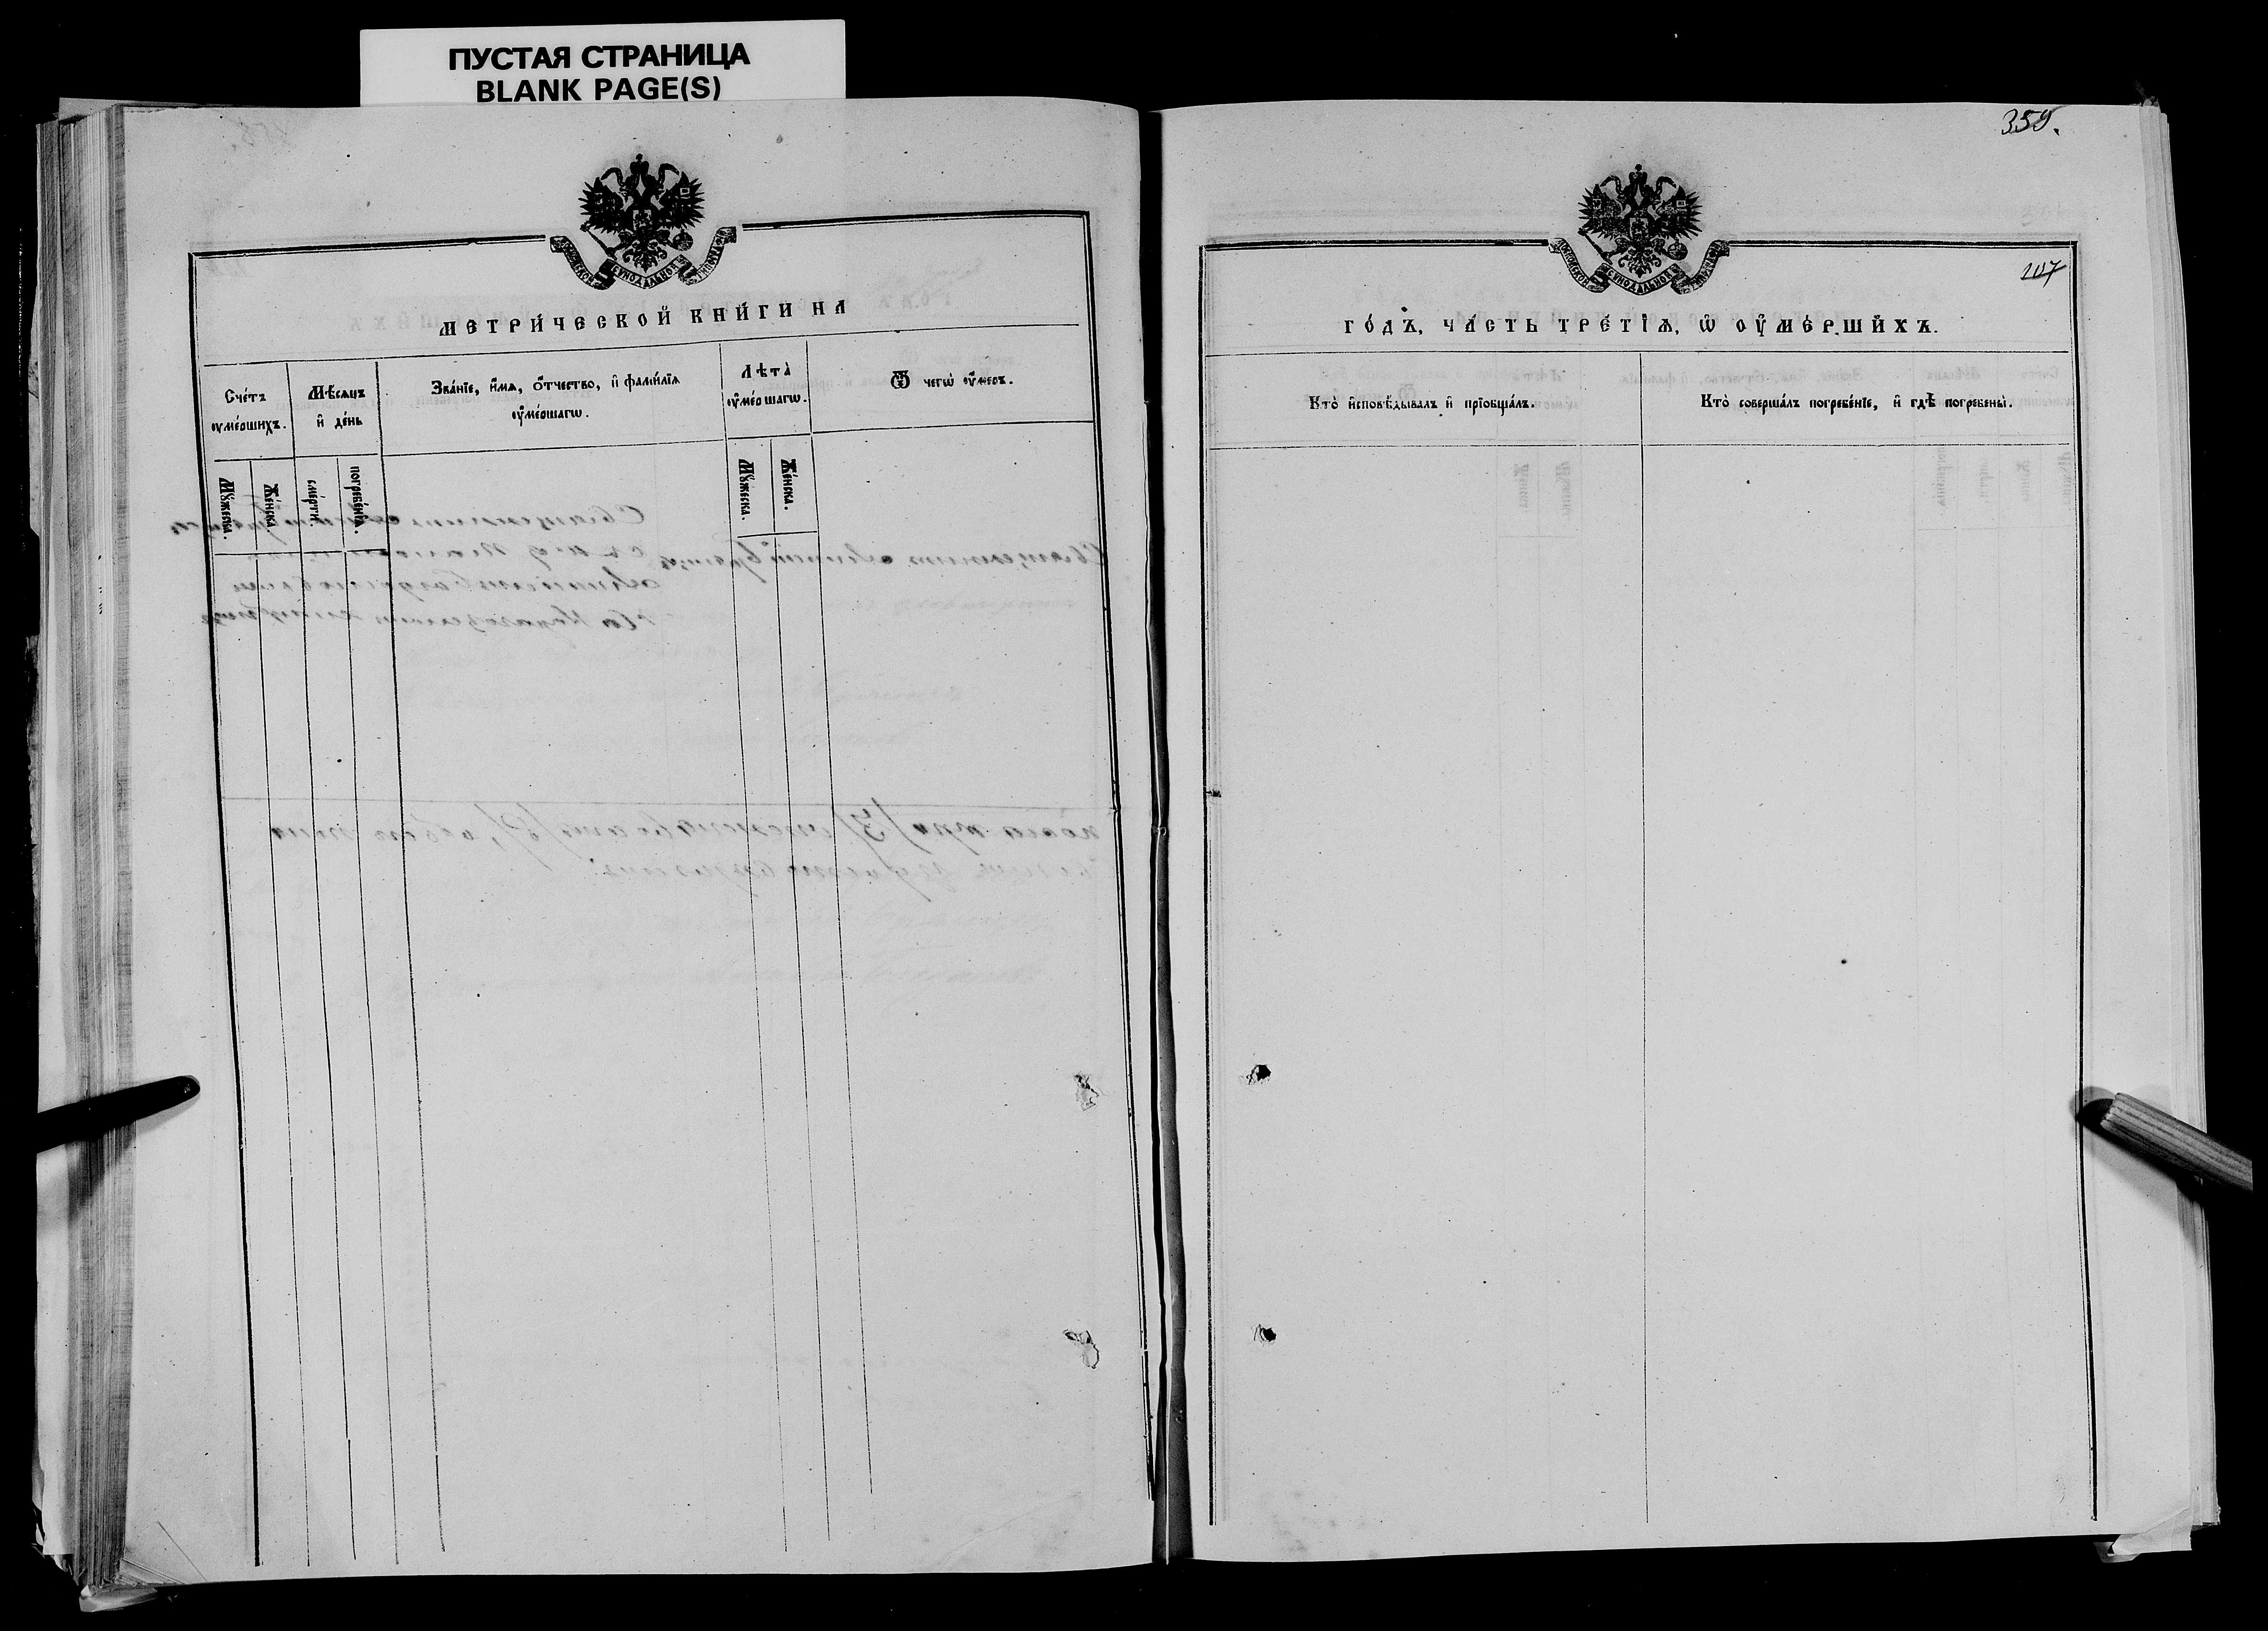 ПУСТАЯ СТРАНИЦА
BLANK PAGE(S)
359.
107
МЕТРИ́ЧЕСКОЙ КНИ́ГИ НА
Сче́тъ ᲂу҆ме́ршихъ.
Мѣ́сѧцъ и҆ де́нь
Зва́нїе, и҆́мѧ, ѻ҆́тчество, и҆ фамѝлїѧ ᲂу҆ме́ршагѡ.
Лѣта̀ ᲂу҆ме́ршагѡ.
Ѿ чегѡ̀ ᲂу҆́меръ.
Мꙋ́жеска.
Же́нска.
сме́рти.
погребе́нїѧ.
Мꙋ́жеска.
Же́нска.
ГО́ДЪ, ЧА́СТЬ ТРЕ́ТЇѦ, Ѡ҆ ОУ҆МЕ́РШИХЪ.
Кто̀ и҆сповѣ́дывалъ и҆ прїѻбща́лъ.
Кто̀ соверша́лъ погребе́нїе, и҆ гдѣ̀ погребены̀.